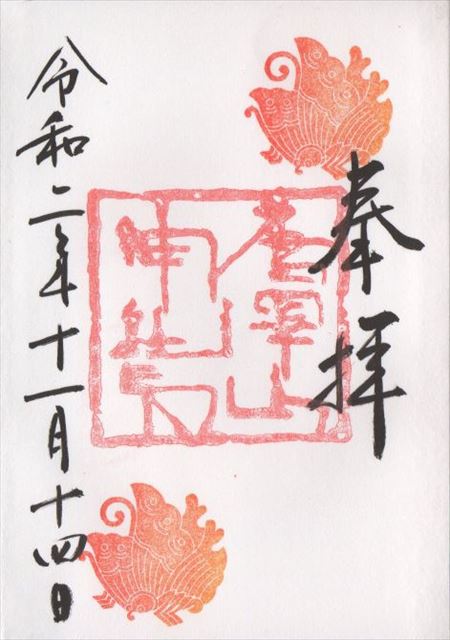 奉拝
令和二年十一月十四日